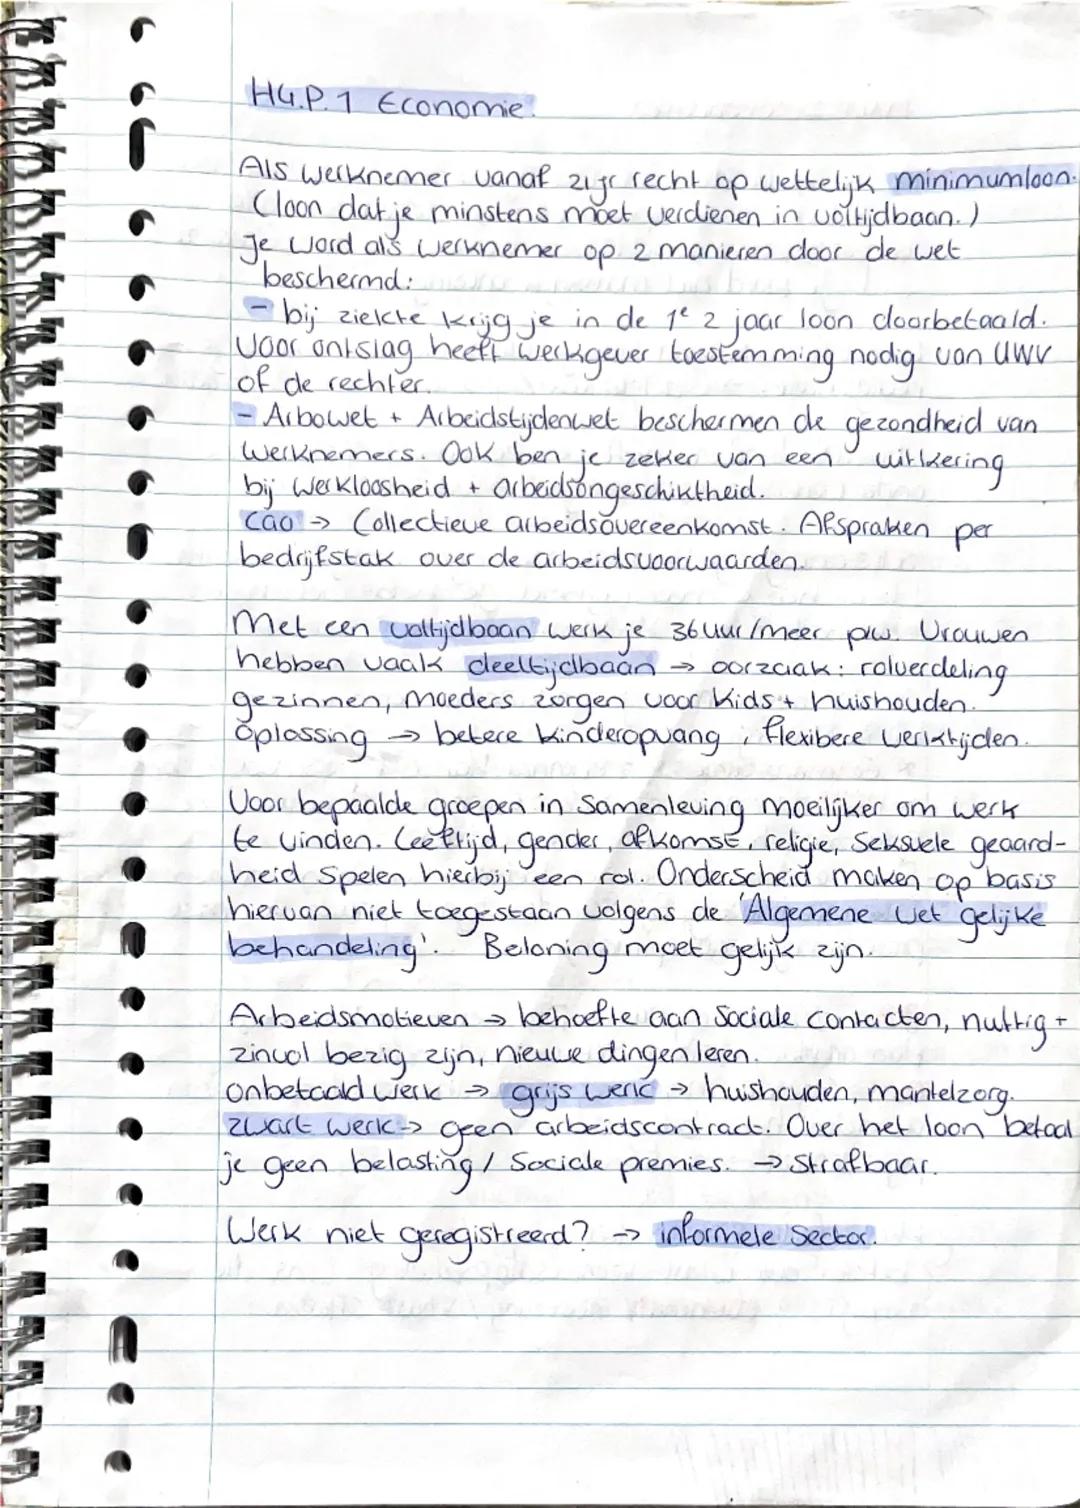 H4.P.1 Economie.
Als werknemer vanaf 21 jr recht op wettelijk minimumloon.
(loon dat je minstens moet verdienen in voltijdbaan.)
Je word als werknemer op 2 manieren door de wet
beschermd:
- bij ziekte krijg je in de 1e 2 jaar loon doorbetaald.
Voor ontslag heeft werkgever toestemming nodig van UWV
of de rechter.
- Arbowet + Arbeidstijdenwet beschermen de gezondheid van
werknemers. Ook ben je zeker van een uitkering
bij werkloosheid + arbeidsongeschiktheid.
Cao → Collectieve arbeidsovereenkomst. Afspraken per
bedrijfstak over de arbeidsvoorwaarden.
Met een voltijdbaan werk je 36 uur/meer p/w. Vrouwen
hebben vaak deeltijdbaan → oorzaak: rolverdeling
gezinnen, moeders zorgen voor kids + huishouden.
Oplossing → betere kinderopvang, flexibere werktijden.
Voor bepaalde groepen in Samenleving moeilijker om werk
te vinden. Leeftijd, gender, afkomst, religie, Seksuele geaard-
heid spelen hierbij een rol. Onderscheid maken op basis
hiervan niet toegestaan volgens de 'Algemene Wet gelijke
behandeling'. Beloning moet gelijk zijn.
Arbeidsmotieven → behoefte aan Sociale contacten, nuttig +
zinvol bezig zijn, nieuwe dingen leren.
Onbetaald werk → grijs werk → huishouden, mantelzorg.
Zwart werk → geen arbeidscontract. Over het loon betaal
je geen belasting / Sociale premies. → Strafbaar.
Werk niet geregistreerd? → informele Sector.